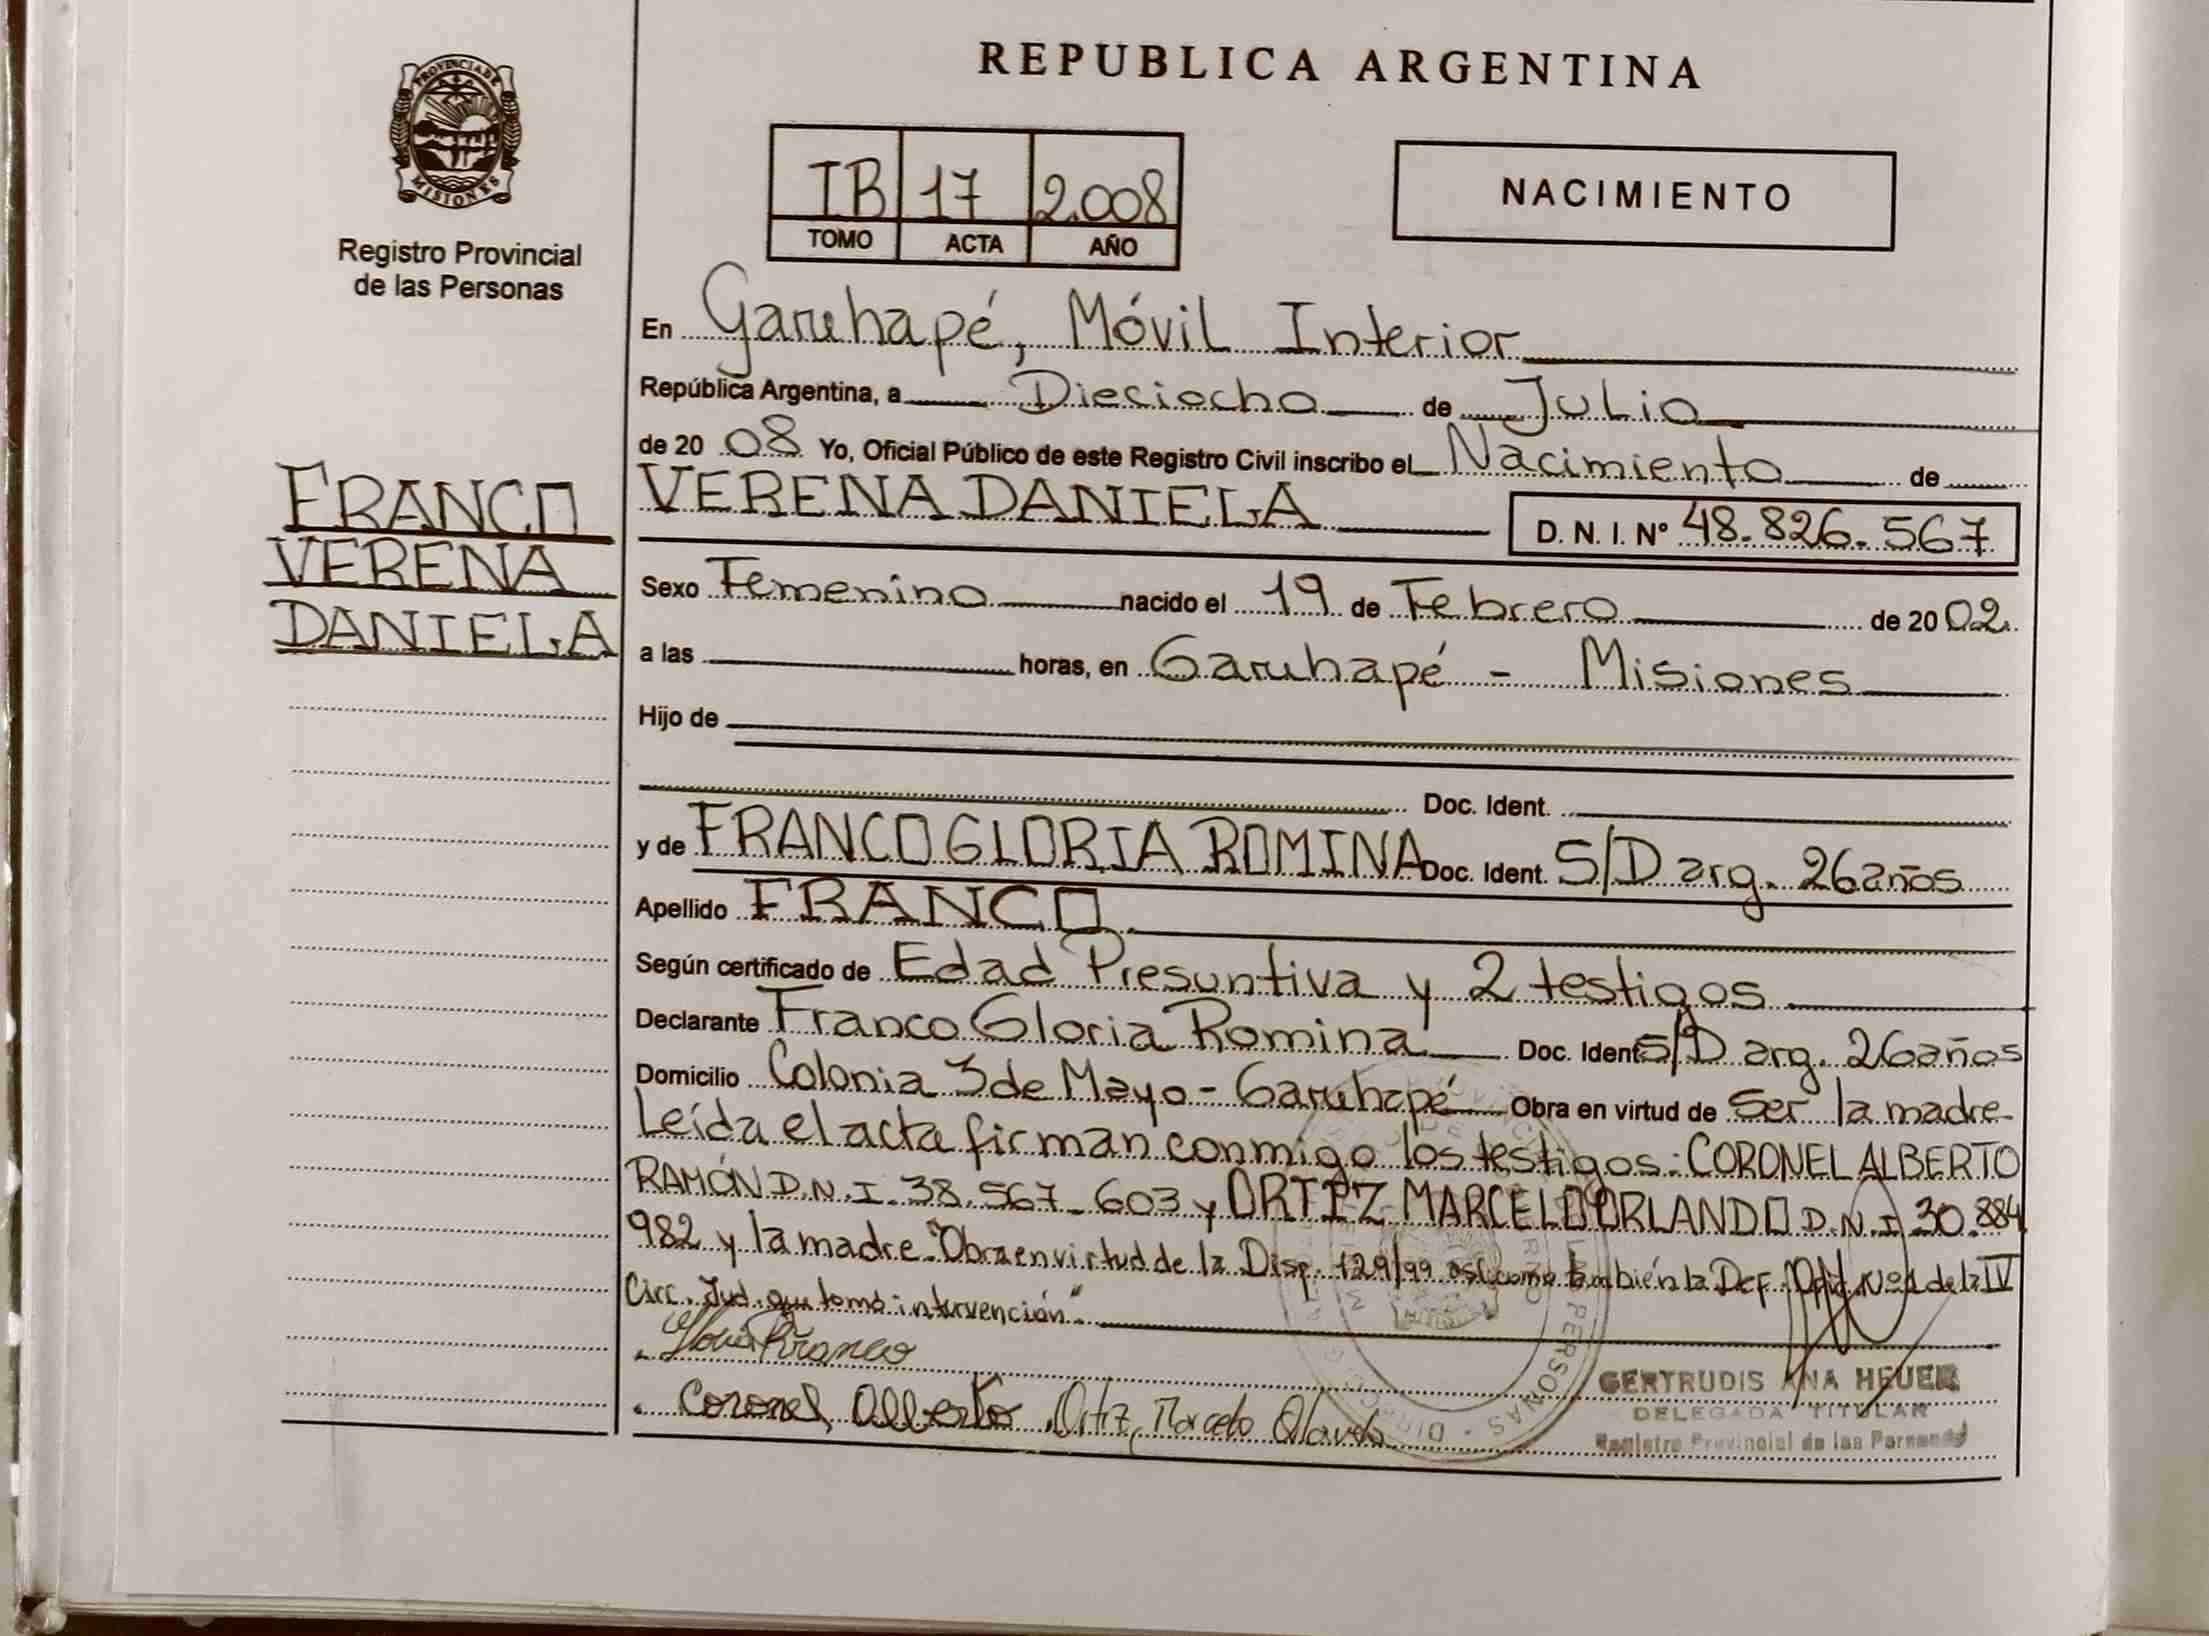 PROVINCIA DE
MISIONES
Registro Provincial
de las Personas
FRANCO
VERENA
DANIELA
REPUBLICA ARGENTINA
TB 17 2.008
TOMO ACTA AÑO
NACIMIENTO
En Garuhapé, Móvil Interior
República Argentina, a Dieciocho de Julio
de 20 08 Yo, Oficial Público de este Registro Civil inscribo el Nacimiento de
VERENA DANIELA D. N. I. Nº 48.826.567
Sexo Femenino nacido el 19 de Febrero de 20 02
a las horas, en Garuhapé - Misiones
Hijo de
Doc. Ident.
y de FRANCO GLORIA ROMINA Doc. Ident. S/D arg. 26 años
Apellido FRANCO
Según certificado de Edad Presuntiva y 2 testigos
Declarante Franco Gloria Romina Doc. Ident S/D arg. 26 años
Domicilio Colonia 3 de Mayo - Garuhapé Obra en virtud de Ser la madre
Leída el acta firman conmigo los testigos: CORONEL ALBERTO
RAMÓN D.N.I. 38.567.603 y ORTIZ MARCELO ORLANDO D.N.I 30.884
982 y la madre. "Obra en virtud de la Disp. 129/99 así como también la Def. Ofic. Nº1 de la IV
Circ. Jud. que tomó intervención".
Gloria Franco
Coronel Alberto Ortiz, Marcelo Orlando
GERTRUDIS ANA HEUER
DELEGADA TITULAR
Registro Provincial de las Personas